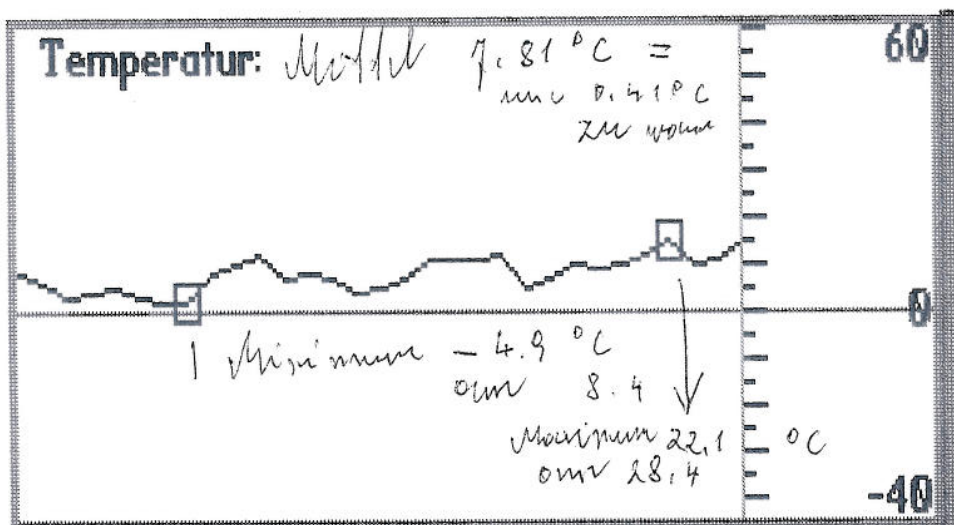 Temperatur: Mittel 7.81 °C =
nur 0.41 °C
zu warm
60
0
Minimum - 4.9 °C
am 8.4
Maximum 22,1 °C
am 28.4
-40